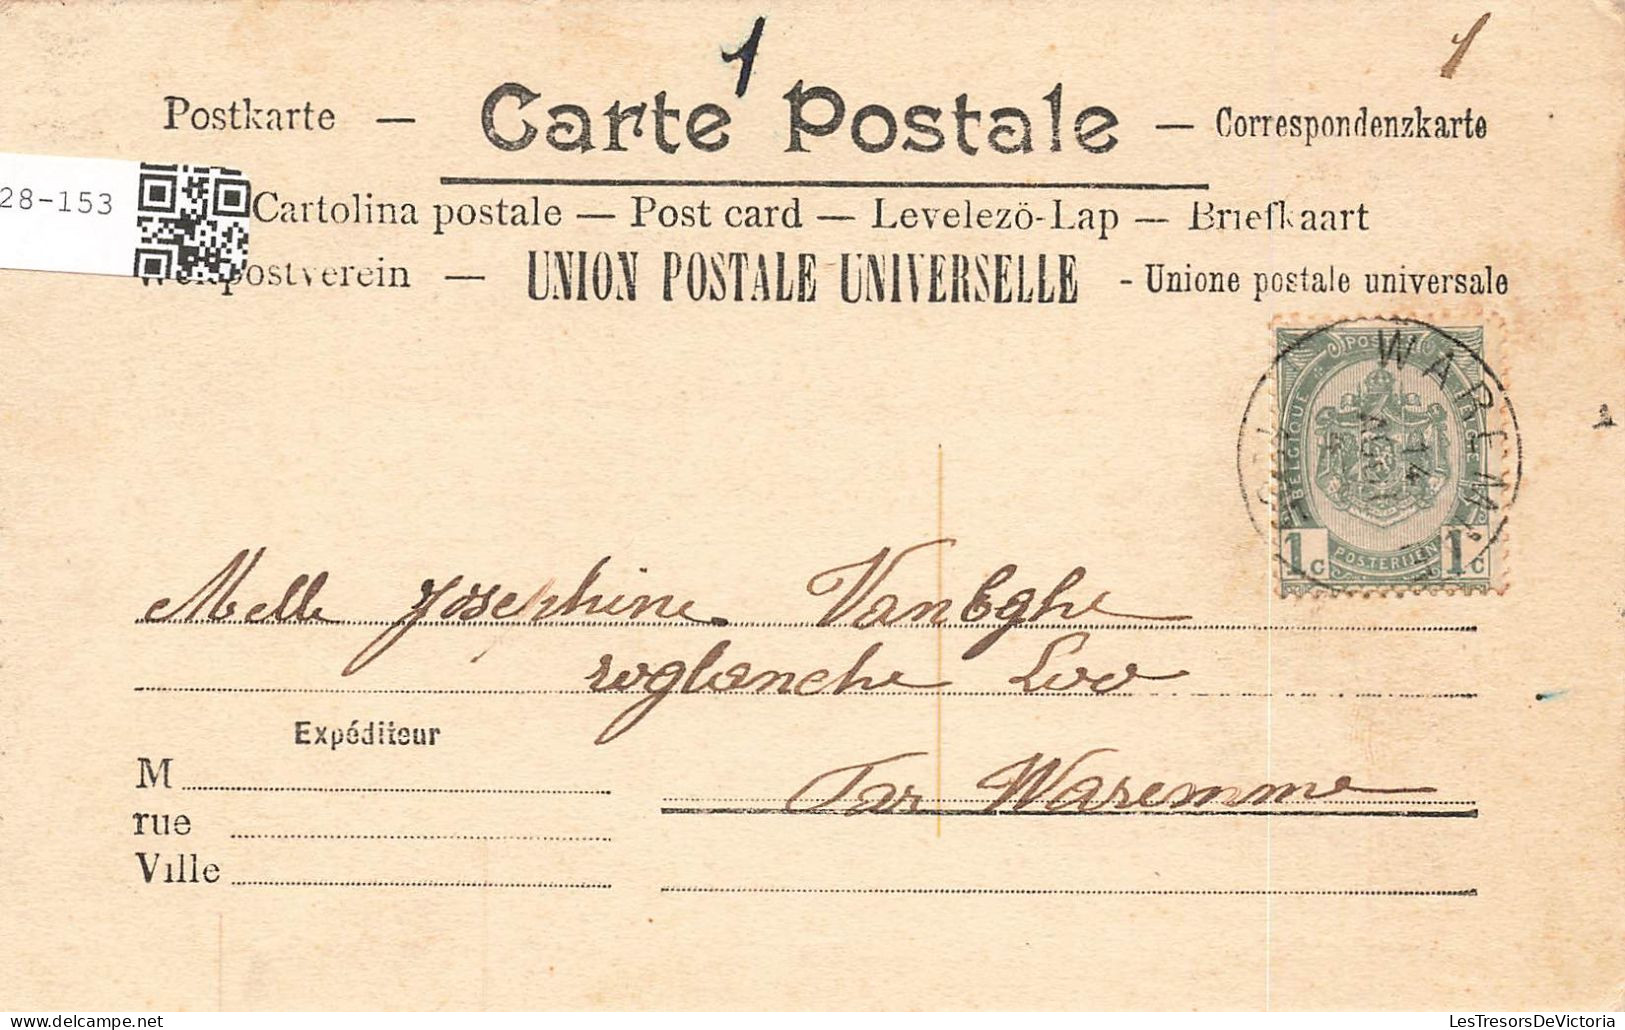 1
1
Postkarte — Carte Postale — Correspondenzkarte
28-153
Cartolina postale — Post card — Levelezö-Lap — Briefkaart
Weltpostverein — UNION POSTALE UNIVERSELLE - Unione postale universale
WAREMME
14
BELGIQUE
POSTERIJEN
1c 1c
Melle Josephine VanEghe
roglanche Loo
Expéditeur
M
rue
Ville
Par Waremme
LesTresorsDeVictoria